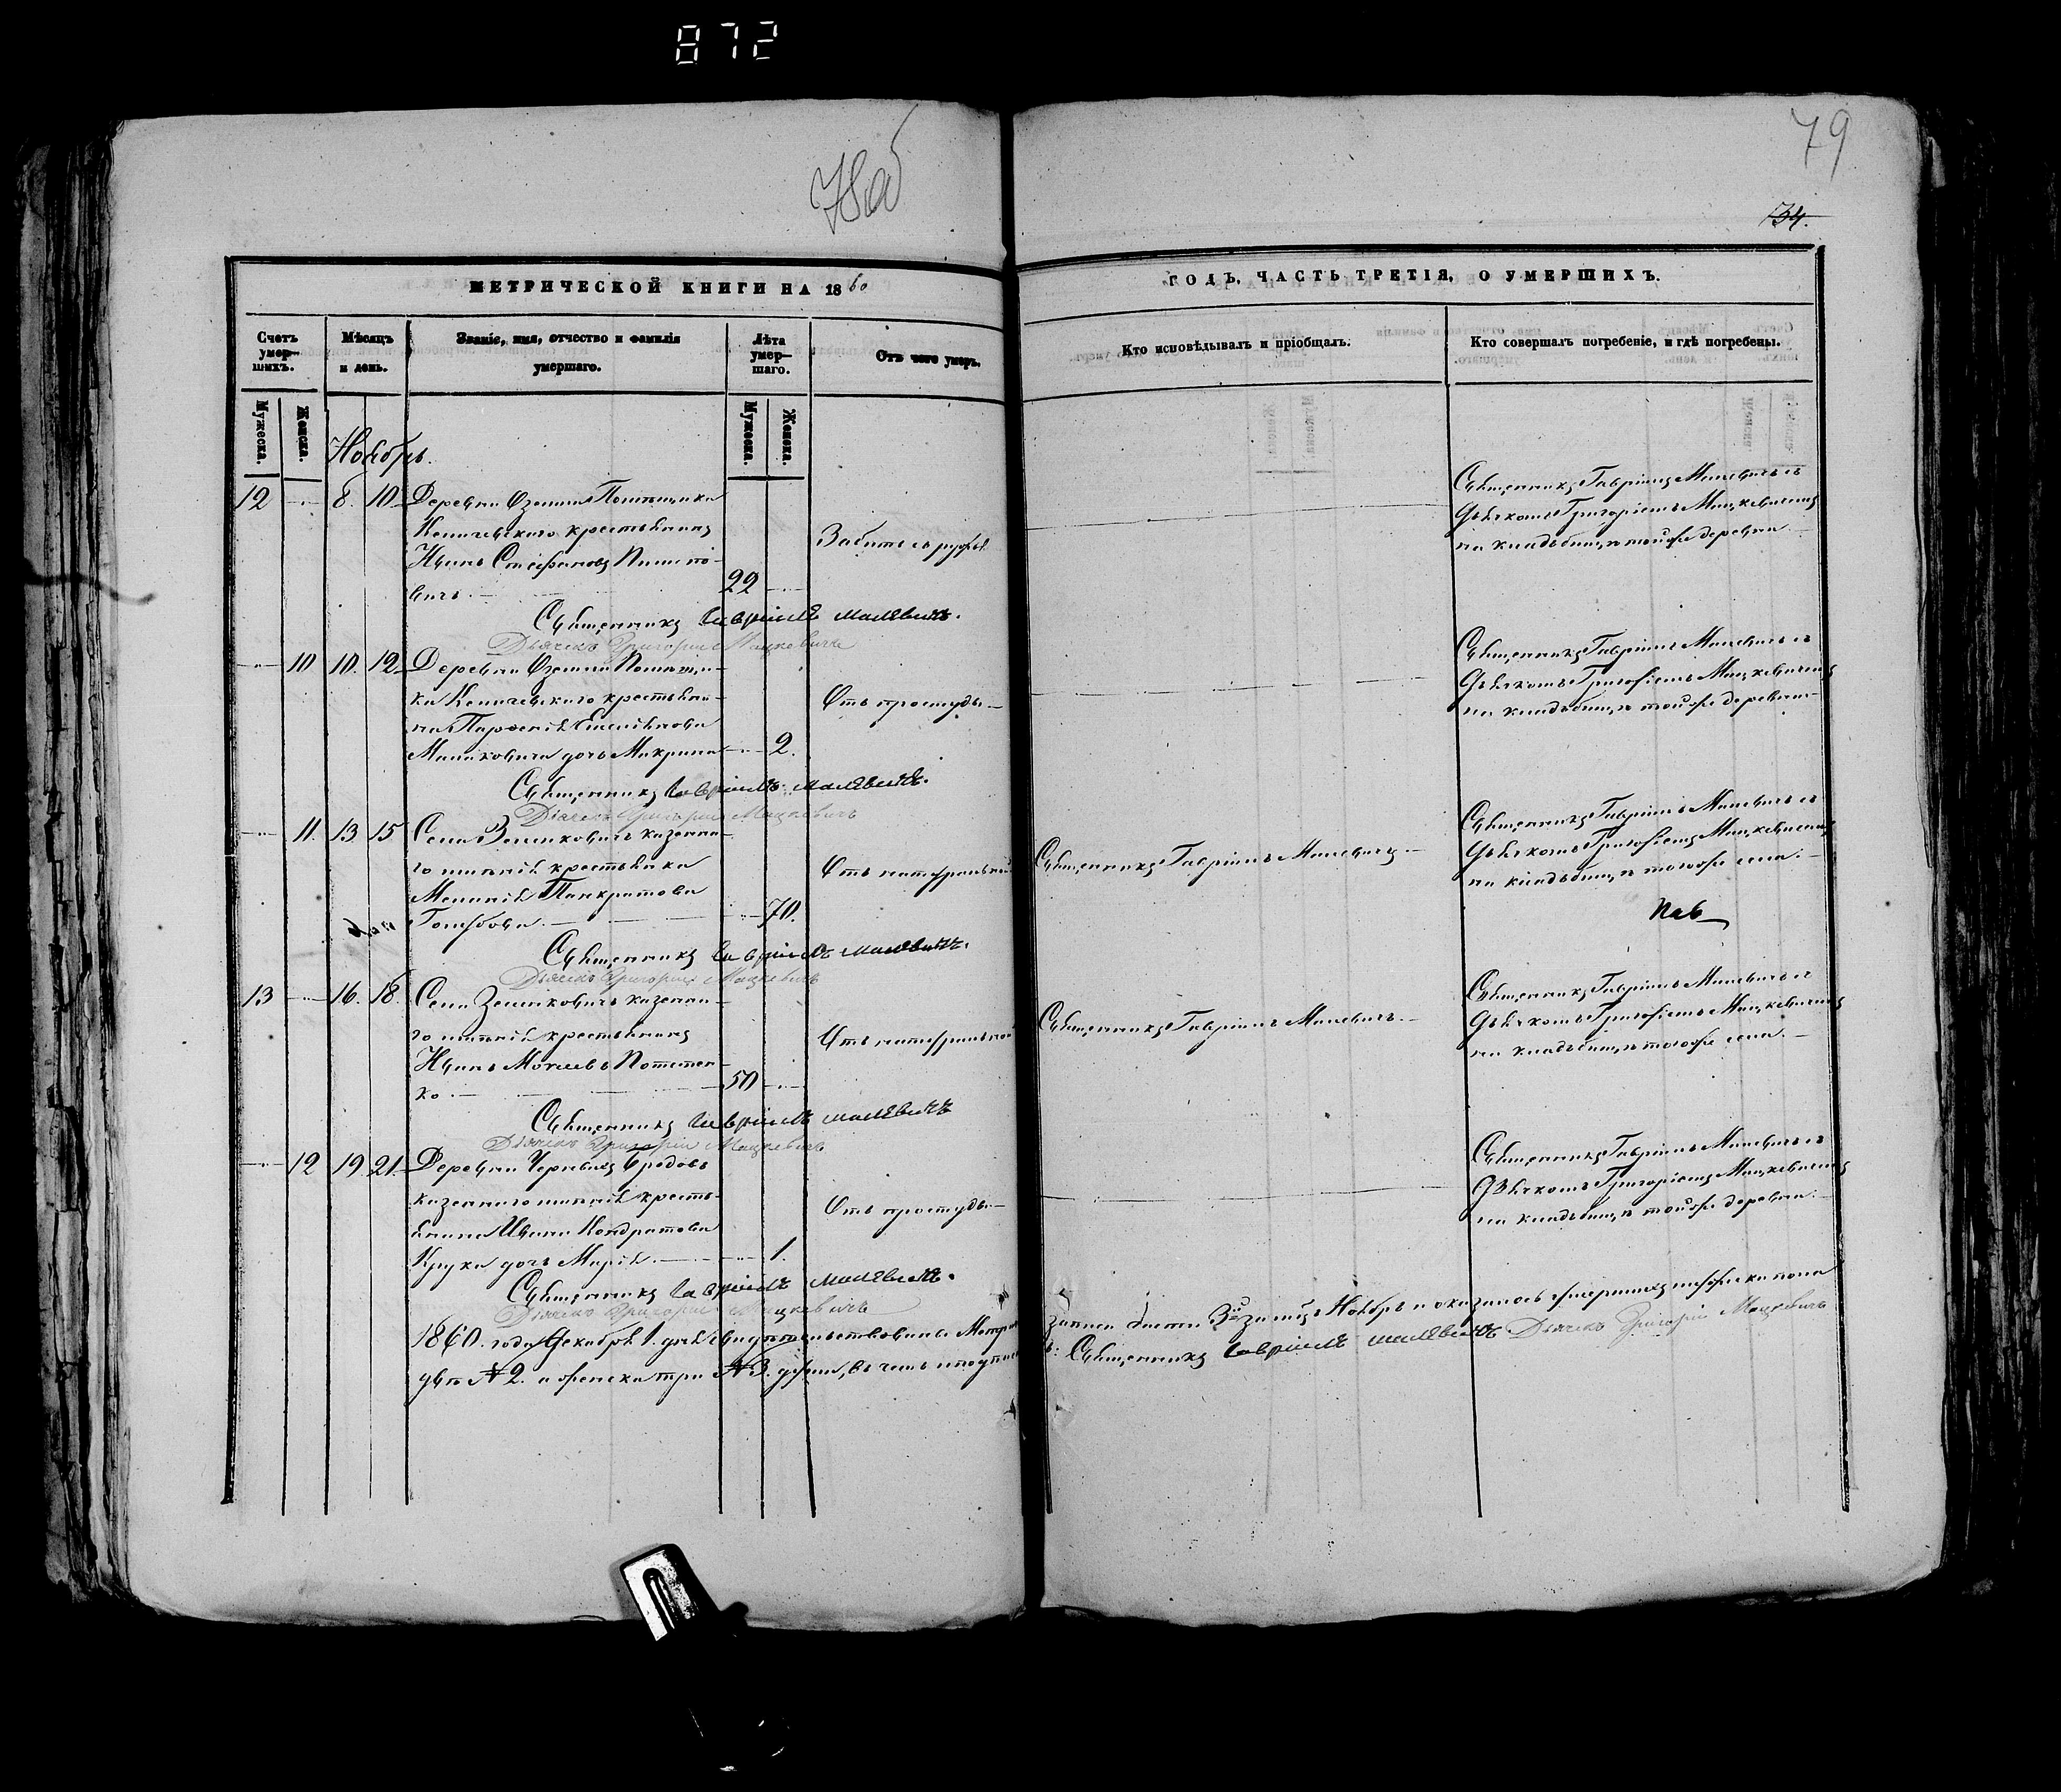 872
78об
79
34.
МЕТРИЧЕСКОЙ КНИГИ НА 1860
ГОДЪ, ЧАСТЬ ТРЕТІЯ, О УМЕРШИХЪ.
Счетъ умер-шихъ.
Мѣсяцъ и день.
Званіе, имя, отчество и фамилія умершаго.
Лѣта умер-шаго.
Отъ чего умеръ.
Кто исповѣдывалъ и пріобщалъ.
Кто совершалъ погребеніе, и гдѣ погребены.
Мужеска.
Женска.
Мужеска.
Женска.
Ноябрь.
12 8. 10 Деревни Оземли Помѣщика
крестьянинъ
Иванъ Стефановъ
вичъ. 22
Священникъ Гавріилъ Малевичъ.
Дьячекъ Григорій Мацкевичъ
Священникъ Гавріилъ Малевичъ съ
Дьячкомъ Григоріемъ Мацкевичемъ
на кладбищѣ той же деревни
10 10. 12 Деревни Оземли Помѣщи-
ка крестьяни-
на
дочь Макрина 2.
Отъ простуды
Священникъ Гавріилъ Малевичъ.
Дьячекъ Григорій Мацкевичъ
Священникъ Гавріилъ Малевичъ съ
Дьячкомъ Григоріемъ Мацкевичемъ
на кладбищѣ той же деревни
11. 13 15 Села казенна-
го имѣнія крестьянка
Меланія Панкратова
70.
Отъ натуральной
Священникъ Гавріилъ Малевичъ.
Священникъ Гавріилъ Малевичъ.
Дьячекъ Григорій Мацкевичъ
Священникъ Гавріилъ Малевичъ съ
Дьячкомъ Григоріемъ Мацкевичемъ
на кладбищѣ тогоже села.
13 16. 18 Села казенна-
го имѣнія крестьянинъ
Иванъ Потапен-
ко. 50
Отъ натуральной
Священникъ Гавріилъ Малевичъ.
Священникъ Гавріилъ Малевичъ
Дьячекъ Григорій Мацкевичъ
Священникъ Гавріилъ Малевичъ съ
Дьячкомъ Григоріемъ Мацкевичемъ
на кладбищѣ тогоже села.
12 19. 21. Деревни Черныхъ Бродовъ
казеннаго имѣнія кресть-
янина Ивана Кондратова
Крука дочь Марія. 1.
Отъ простуды
Священникъ Гавріилъ Малевичъ.
Дьячекъ Григорій Мацкевичъ
Священникъ Гавріилъ Малевичъ съ
Дьячкомъ Григоріемъ Мацкевичемъ
на кладбищѣ той же деревни.
1860. года Декабря 1. дня свидѣтельствованы
записи за мцъ Ноябрь и оказалось умершихъ мужеска пола
два № 2. а женска три № 3. души, въ чемъ
Священникъ Гавріилъ Малевичъ Дьячекъ Григорій Мацкевичъ